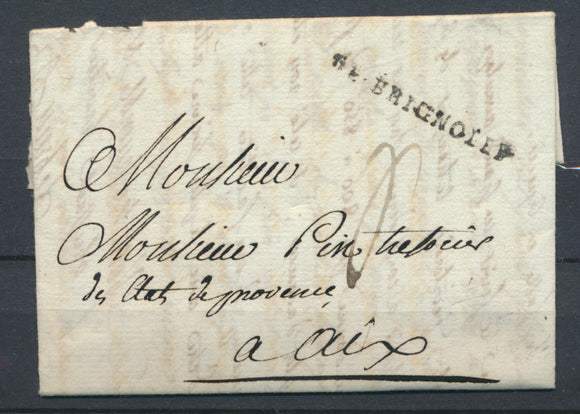 DE BRIGNOLLE
Monsieur
Monsieur Pin tresorier
des Etats de provence
a aix